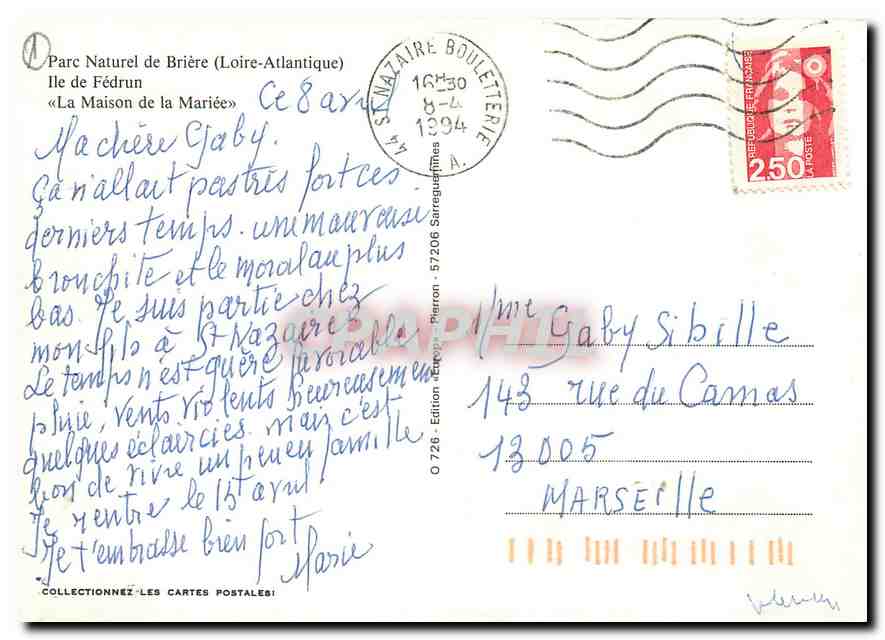 1
Parc Naturel de Brière (Loire-Atlantique)
Ile de Fédrun
«La Maison de la Mariée»
Ce 8 avril
Ma chère Gaby.
Ça n'allait pas très fort ces
derniers temps. une mauvaise
bronchite et le moral au plus
bas. Je suis partie chez
mon fils à St Nazaire
Le temps n'est guère favorable
pluie, vents violents heureusement
quelques éclaircies. mais c'est
bon de vivre un peu en famille
Je rentre le 15 avril
Je t'embrasse bien fort
Marie
COLLECTIONNEZ LES CARTES POSTALES!
O 726 - Edition «Europ» - Pierron - 57206 Sarreguemines
44 ST NAZAIRE BOULETTERIE
16H30
8-4
1994
A.
REPUBLIQUE FRANÇAISE
2,50
LA POSTE
CPAPHIL
Mme Gaby Sibille
143 rue du Camas
13005
MARSEILLE